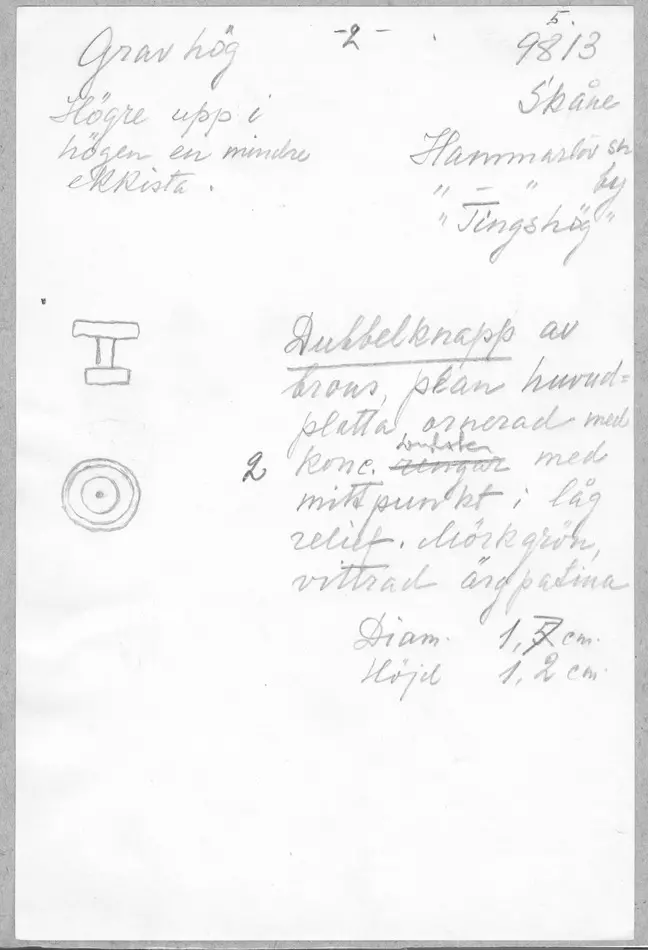 -2-
5.
9813
Grav hög
Skåne
Högre upp i
högen en mindre
ekkista.
Hammarlöv sn
" - " by
"Tingshög"
Dubbelknapp av
brons, plan huvud=
platta ornerad med
2 konc. ringar med
mittpunkt i låg
relief. Mörkgrön,
vittrad ärgpatina
Diam. 1,5 cm.
Höjd 1,2 cm.